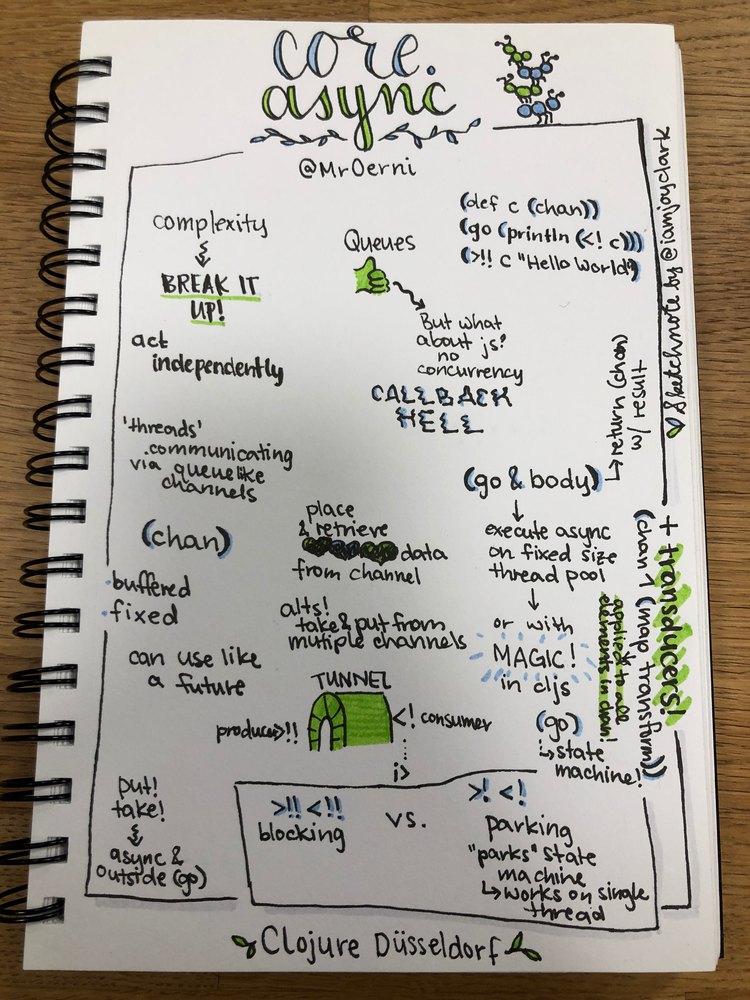 core.
async
@MrOerni
complexity
BREAK IT
UP!
act
independently
'threads'
communicating
via queuelike
channels
(chan)
·buffered
·fixed
can use like
a future
put!
take!
async &
outside (go)
Queues
But what
about js?
no
concurrency
CALLBACK
HELL
place
& retrieve
data
from channel
alts!
take & put from
multiple channels
TUNNEL
producer>!!
<! consumer
i>
(def c (chan))
(go (println (<! c)))
(>!! c "Hello World")
(go & body)
return (chan)
w/ result
execute async
on fixed size
thread pool
or with
MAGIC!
in cljs
(go)
state
machine!
+ transducers!
(chan 1 (map transform))
applied to all
elements in chan!
>!! <!!
blocking
vs.
>! <!
parking
"parks" state
machine
works on single
thread
Sketchnote by @iamjoyclark
Clojure Düsseldorf